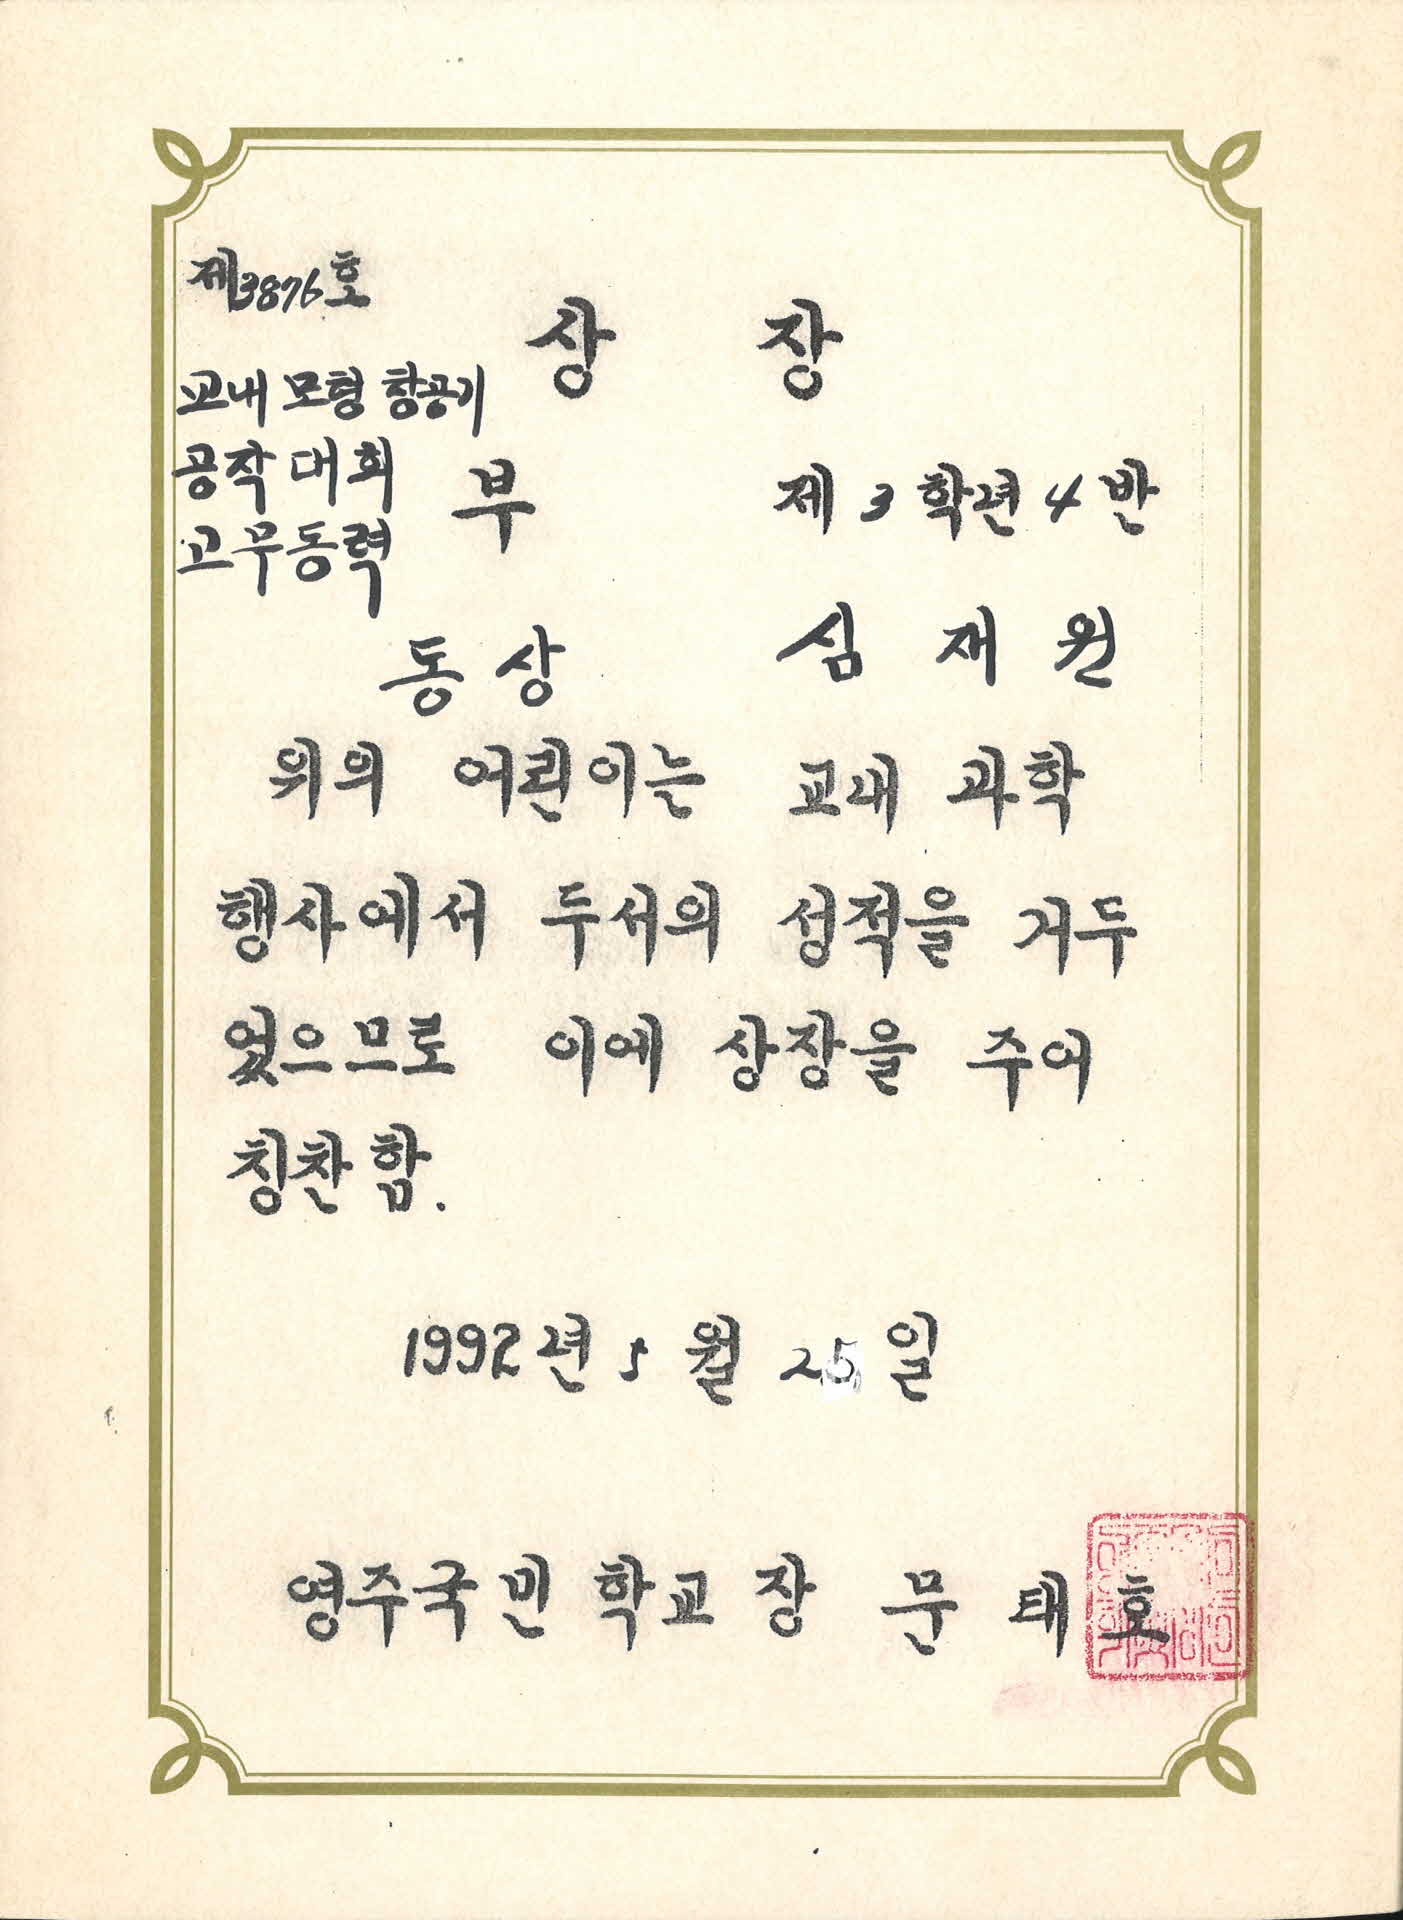 제3876호
상 장
교내 모형 항공기
공작 대회 부
고무동력
제 3 학년 4 반
동상
심 재 원
위의 어린이는 교내 과학
행사에서 두서의 성적을 거두
었으므로 이에 상장을 주어
칭찬함.
1992년 5월 25일
영주국민학교장 문태호